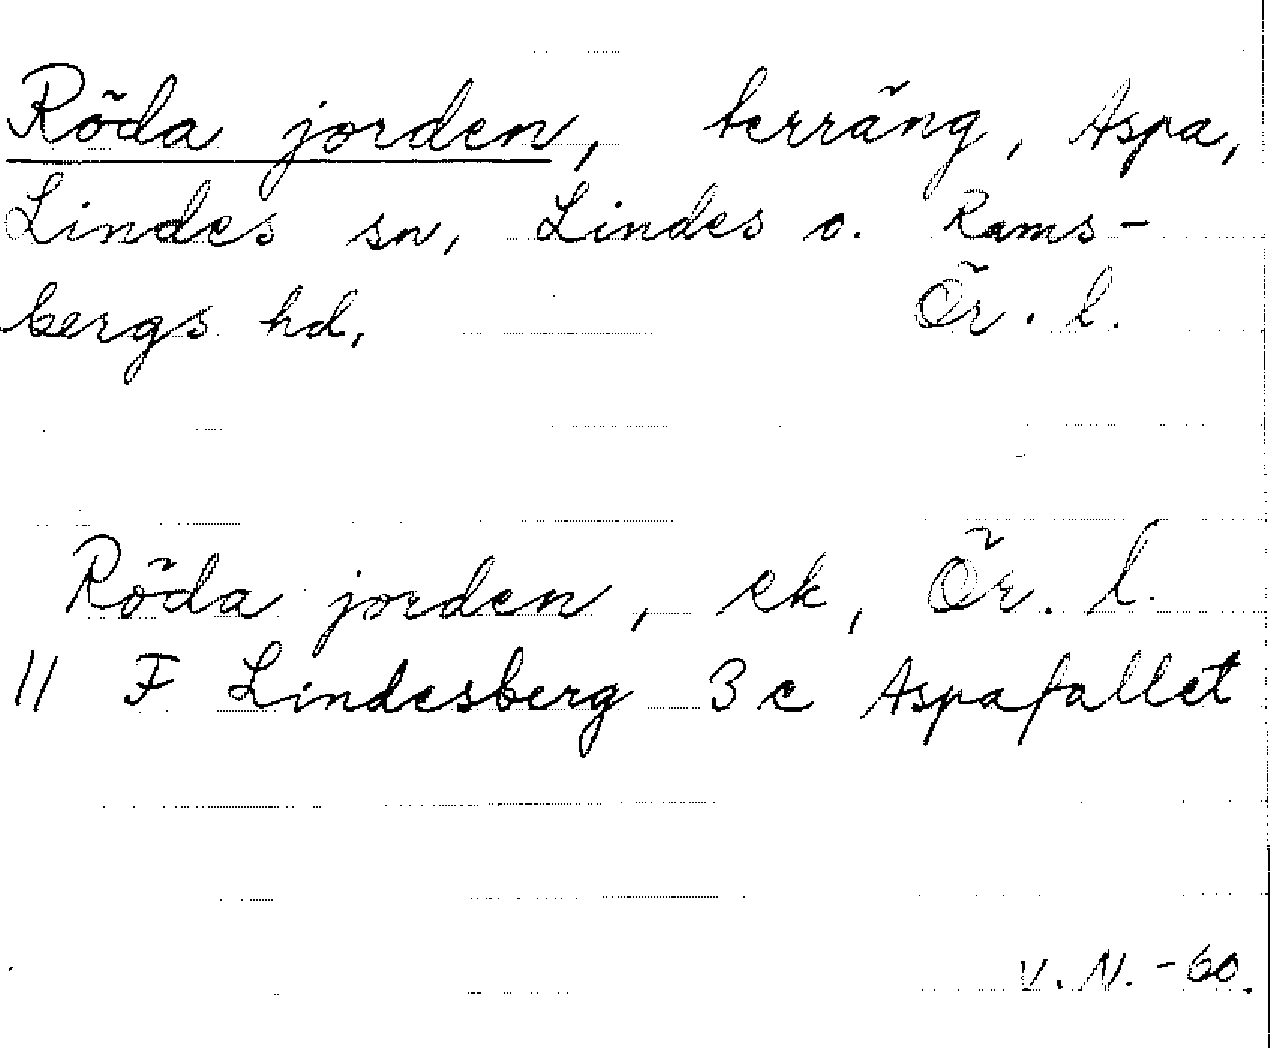 Röda jorden, terräng, Aspa,
Lindes sn, Lindes o. Rams-
bergs hd, Ör. l.
Röda jorden, ek, Ör. l.
11 F Lindesberg 3 c Aspafallet
V. N. -60.